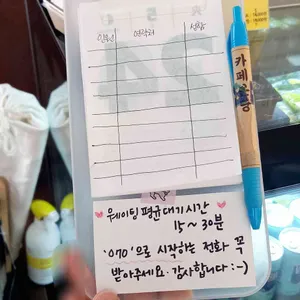 인원 연락처 성함
카페옹
웨이팅 평균대기시간
15 ~ 30분
'070'으로 시작하는 전화 꼭
받아주세요. 감사합니다 :-)